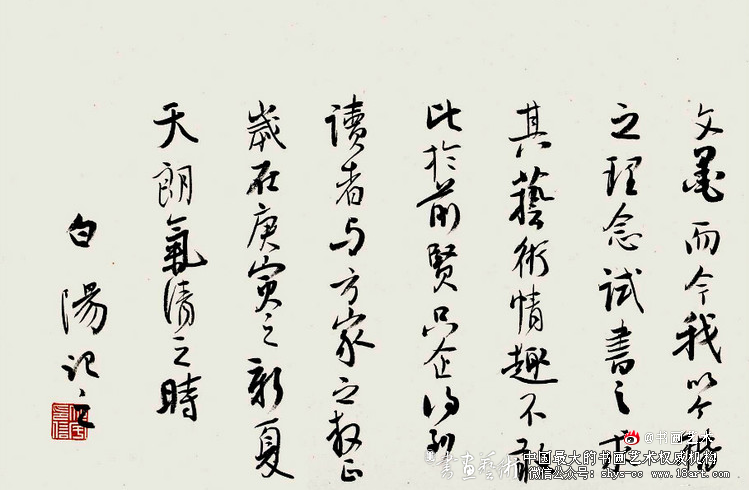 文墨而今我以今楷
之理念試書之
其藝術情趣不敢
比於前賢只企得到
讀者與方家之教正
歲在庚寅之新夏
天朗氣清之時
白陽記之
@书画艺术
書画藝術
中国最大的书画艺术权威机构
微信公众号: shys-cc www.18art.com